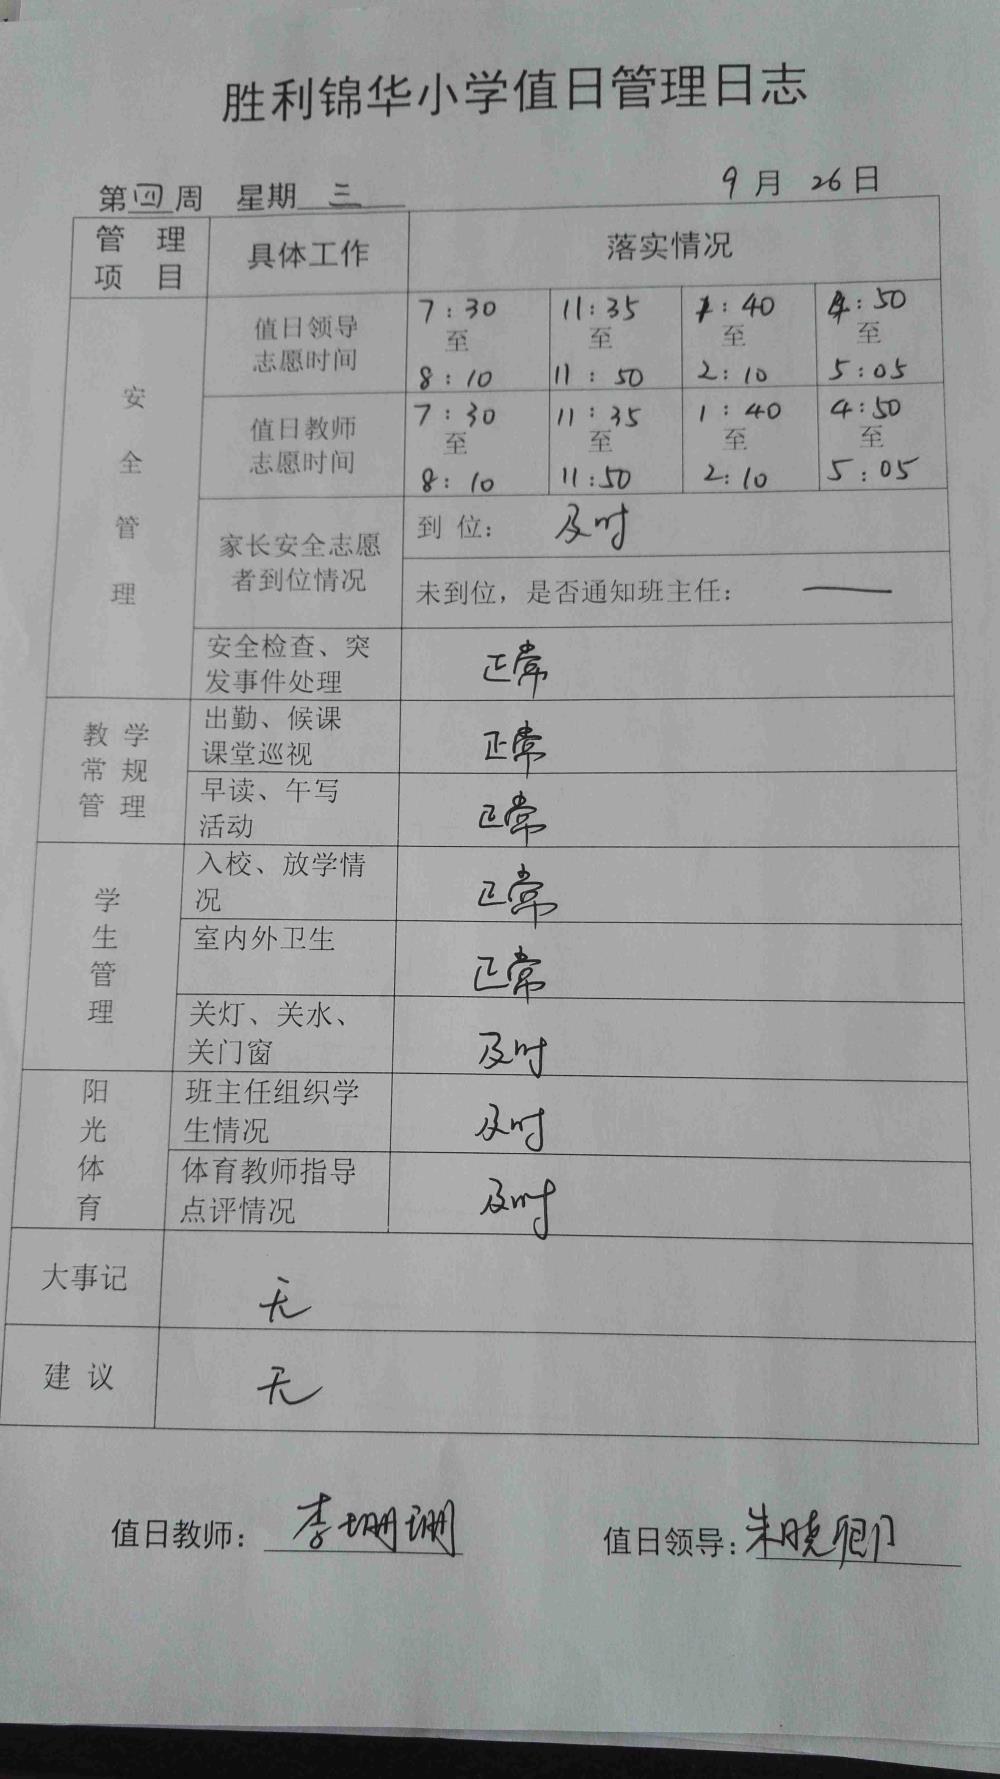 胜利锦华小学值日管理日志
第四周 星期 三 9月 26日
管 理
项 目
具体工作
落实情况
安
全
管
理
值日领导
志愿时间
7:30 11:35 1:40 4:50
至 至 至 至
8:10 11:50 2:10 5:05
值日教师
志愿时间
7:30 11:35 1:40 4:50
至 至 至 至
8:10 11:50 2:10 5:05
家长安全志愿
者到位情况
到 位: 及时
未到位,是否通知班主任: —
安全检查、突
发事件处理
正常
教 学
常 规
管 理
出勤、候课
课堂巡视
正常
早读、午写
活动
正常
学
生
管
理
入校、放学情
况
正常
室内外卫生
正常
关灯、关水、
关门窗
及时
阳
光
体
育
班主任组织学
生情况
及时
体育教师指导
点评情况
及时
大事记
无
建 议
无
值日教师: 李珊珊 值日领导: 朱晓卿